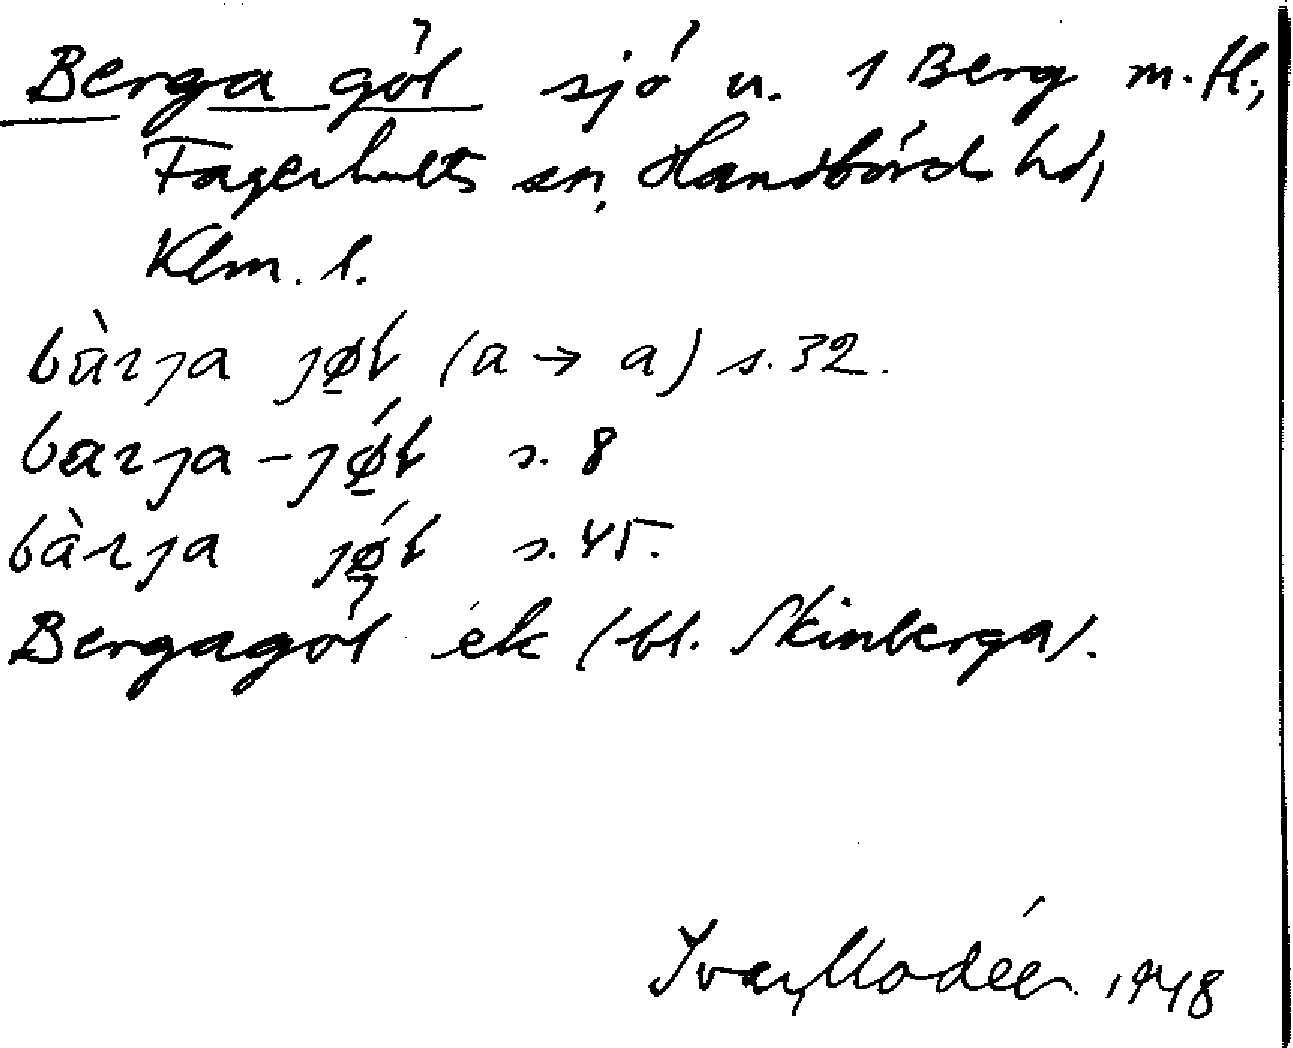 Berga göl sjö u. 1 Berg m. fl.,
Fagerhults sn, Handbörds hd,
Klm. l.
bàrja jøl (a → a) s. 32.
barja-jøl s. 8
bàrja jøl s. 45.
Bergagöl ek (bl. Skinberga).
Ivar Modéer 1948